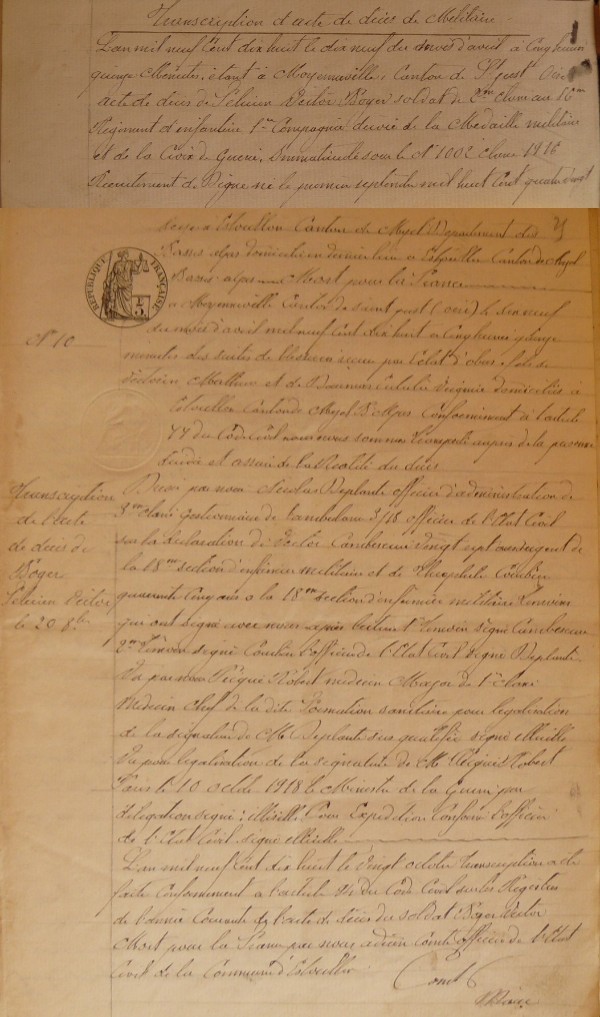 Transcription d acte de décès de Militaire
L'an mil neuf cent dix huit le dix neuf du mois d'avril à Cinq heures
quinze Minutes, étant à Moyenneville, Canton de St just Oise
acte de décès de Félicien Victor Boyer soldat de 2me classe au
Régiment d'infanterie 1re Compagnie décoré de la Médaille militaire
et de la Croix de Guerre, Immatriculé sous le N° 1002 classe 1916
Recrutement de Digne né le premier septembre mil huit Cent quatre vingt
Canton de Département des
Basses alpes domicilié en dernier lieu a Canton de
Basses-alpes Mort pour la France
à Moyenneville Canton de saint just (oise) le dix neuf
du mois d'avril mil neuf Cent dix huit a Cinq heures quinze
minutes des suites de blessures reçues par éclat d'obus, fils de
et de domiciliés à
Canton de Bses Alpes Conformément à l'article
77 du Code Civil nous nous sommes transporté auprès de la personne
décédée et assuré de la Réalité du décès
RÉPUBLIQUE FRANÇAISE
N° 10
Transcription
de l'acte
de décès de
Boyer
Félicien Victor
le 20 8bre
Dressé par nous Nicolas Deplante officier d'administration de
3me classe gestionnaire de l'ambulance 3/18 officier de l'Etat Civil
sur la déclaration de Victor vingt sept ans sergent de
la 18me section d'infirmiers militaires et de Théophile
quarante Cinq ans a la 18me section d'infirmiers militaires témoins
qui ont signé avec nous après lecture 1er témoin signé
2me témoin signé l'officier de l'Etat Civil signé Deplante
Vu par nous Robert médecin Major de 1re classe
médecin chef de la dite formation sanitaire pour légalisation
de la signature de Mr Deplante sus qualifié signé illisible
Vu pour légalisation de la signature de Mr Robert
Paris le 10 octobre 1918 le Ministre de la Guerre par
délégation signé : illisible Pour Expédition Conforme l'officier
de l'Etat Civil signé illisible
L'an mil neuf cent dix huit le Vingt octobre transcription a été
faite Conformément a l'article du Code Civil sur les Registres
de l'année Courante de l'acte de décès du soldat Boyer Victor
Mort pour la France par nous officier de l'Etat
Civil de la Commune